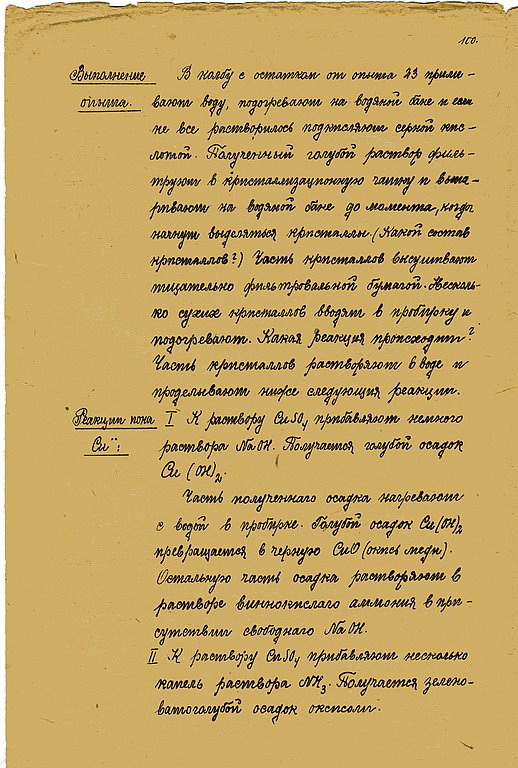 160.
Выполнение В колбу с остатком от опыта 23 прили-
опыта. вают воду, подогревают на водяной бане и если
не все растворилось подкисляют серной кис-
лотой. Полученный голубой раствор филь-
труют в кристаллизационную чашку и выпа-
ривают на водяной бане до момента, когда
начнут выделяться кристаллы. (Какой состав
кристаллов?) Часть кристаллов высушивают
тщательно фильтровальной бумагой. Несколь-
ко сухих кристаллов вводят в пробирку и
подогревают. Какая реакция происходит?
Часть кристаллов растворяют в воде и
проделывают ниже следующия реакции.
Реакции иона I К раствору CuSO4 прибавляют немного
Cu¨: раствора NaOH. Получается голубой осадок
Cu(OH)2.
Часть полученнаго осадка нагревают
с водой в пробирке. Голубой осадок Cu(OH)2
превращается в черную CuO (окись меди).
Остальную часть осадка растворяют в
растворе виннокислаго аммония в при-
сутствии свободнаго NaOH.
II К раствору CuSO4 прибавляют несколько
капель раствора NH3. Получается зелено-
ватоголубой осадок оксисоли.